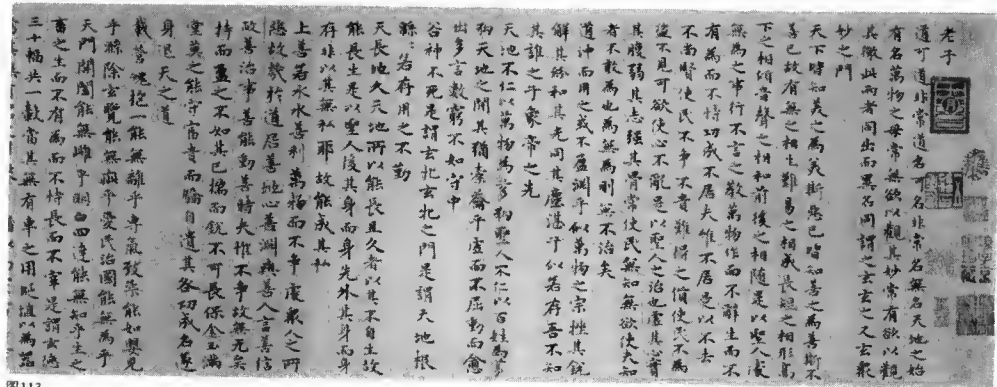 老子
道可道非常道名可名非常名無名天地之始
有名萬物之母常無欲以觀其妙常有欲以觀
其徼此兩者同出而異名同謂之玄玄之又玄衆
妙之門
天下皆知美之為美斯惡已皆知善之為善斯不
善已故有無之相生難易之相成長短之相形高
下之相傾音聲之相和前後之相隨是以聖人處
無為之事行不言之教萬物作而不辭生而不
有為而不恃功成不居夫惟不居是以不去
不尚賢使民不爭不貴難得之貨使民不為
盜不見可欲使心不亂是以聖人之治也虛其心實
其腹弱其志強其骨常使民無知無欲使夫知
者不敢為也為無為則無不治矣
道沖而用之或不盈淵乎似萬物之宗挫其銳
解其紛和其光同其塵湛乎似若存吾不知
其誰之子象帝之先
天地不仁以萬物為芻狗聖人不仁以百姓為芻
狗天地之間其猶橐籥乎虛而不屈動而愈
出多言數窮不如守中
谷神不死是謂玄牝玄牝之門是謂天地根
緜緜若存用之不勤
天長地久天地所以能長且久者以其不自生故
能長生是以聖人後其身而身先外其身而身
存非以其無私耶故能成其私
上善若水水善利萬物而不爭處衆人之所
惡故幾於道居善地心善淵與善人言善信
政善治事善能動善時夫惟不爭故無尤矣
持而盈之不如其已揣而銳不可長保金玉滿
堂莫之能守富貴而驕自遺其咎功成名遂
身退天之道
載營魄抱一能無離乎專氣致柔能如嬰兒
乎滌除玄覽能無疵乎愛民治國能無為乎
天門開闔能無雌乎明白四達能無知乎生之
畜之生而不有為而不恃長而不宰是謂玄德
三十輻共一轂當其無有車之用埏埴以為器
图112